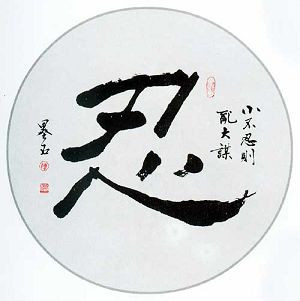 忍
小不忍則
亂大謀